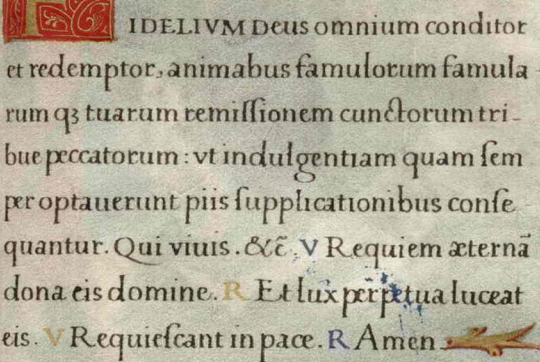 FIDELIVM Deus omnium conditor
et redemptor, animabus famulorum famula
rum qꝫ tuarum remiſſionem cunctorum tri-
bue peccatorum : vt indulgentiam quam ſem
per optauerunt piis ſupplicationibus conſe
quantur. Qui viuis. &c̃. V Requiem æternā
dona eis domine. R Et lux perpetua luceat
eis. V Requieſcant in pace. R Amen